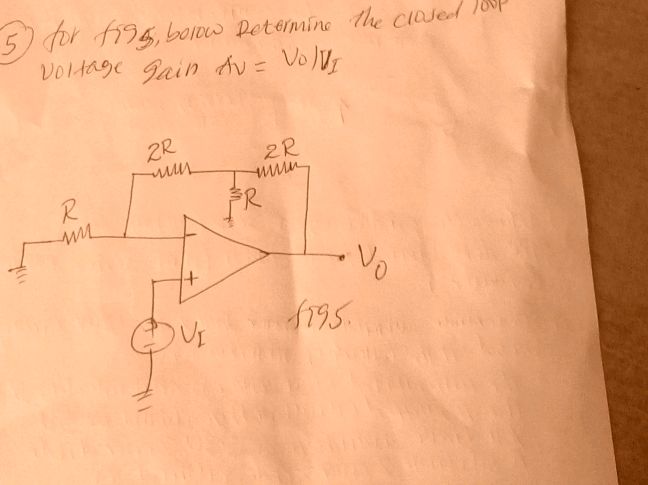 5 for fig5, below Determine the closed loop
Voltage gain Av = Vo/VI
2R
2R
R
R
-
+
Vo
VI
fig5.